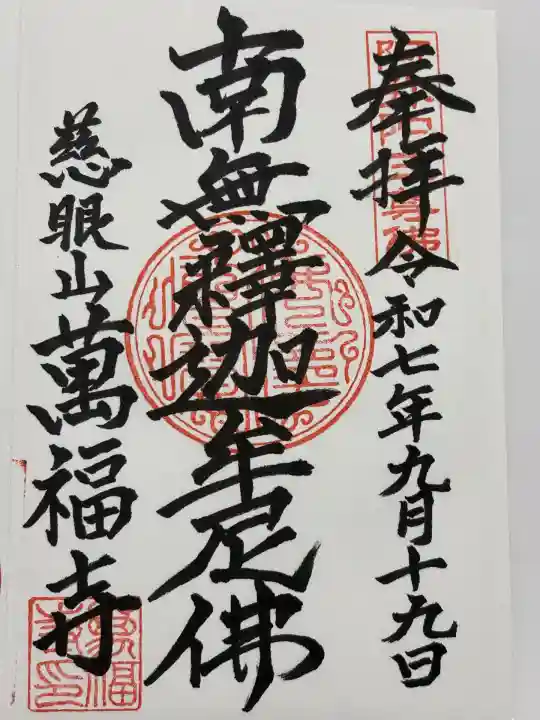 奉拝 令和七年九月十九日
南無釋迦牟尼佛
慈眼山 萬福寺